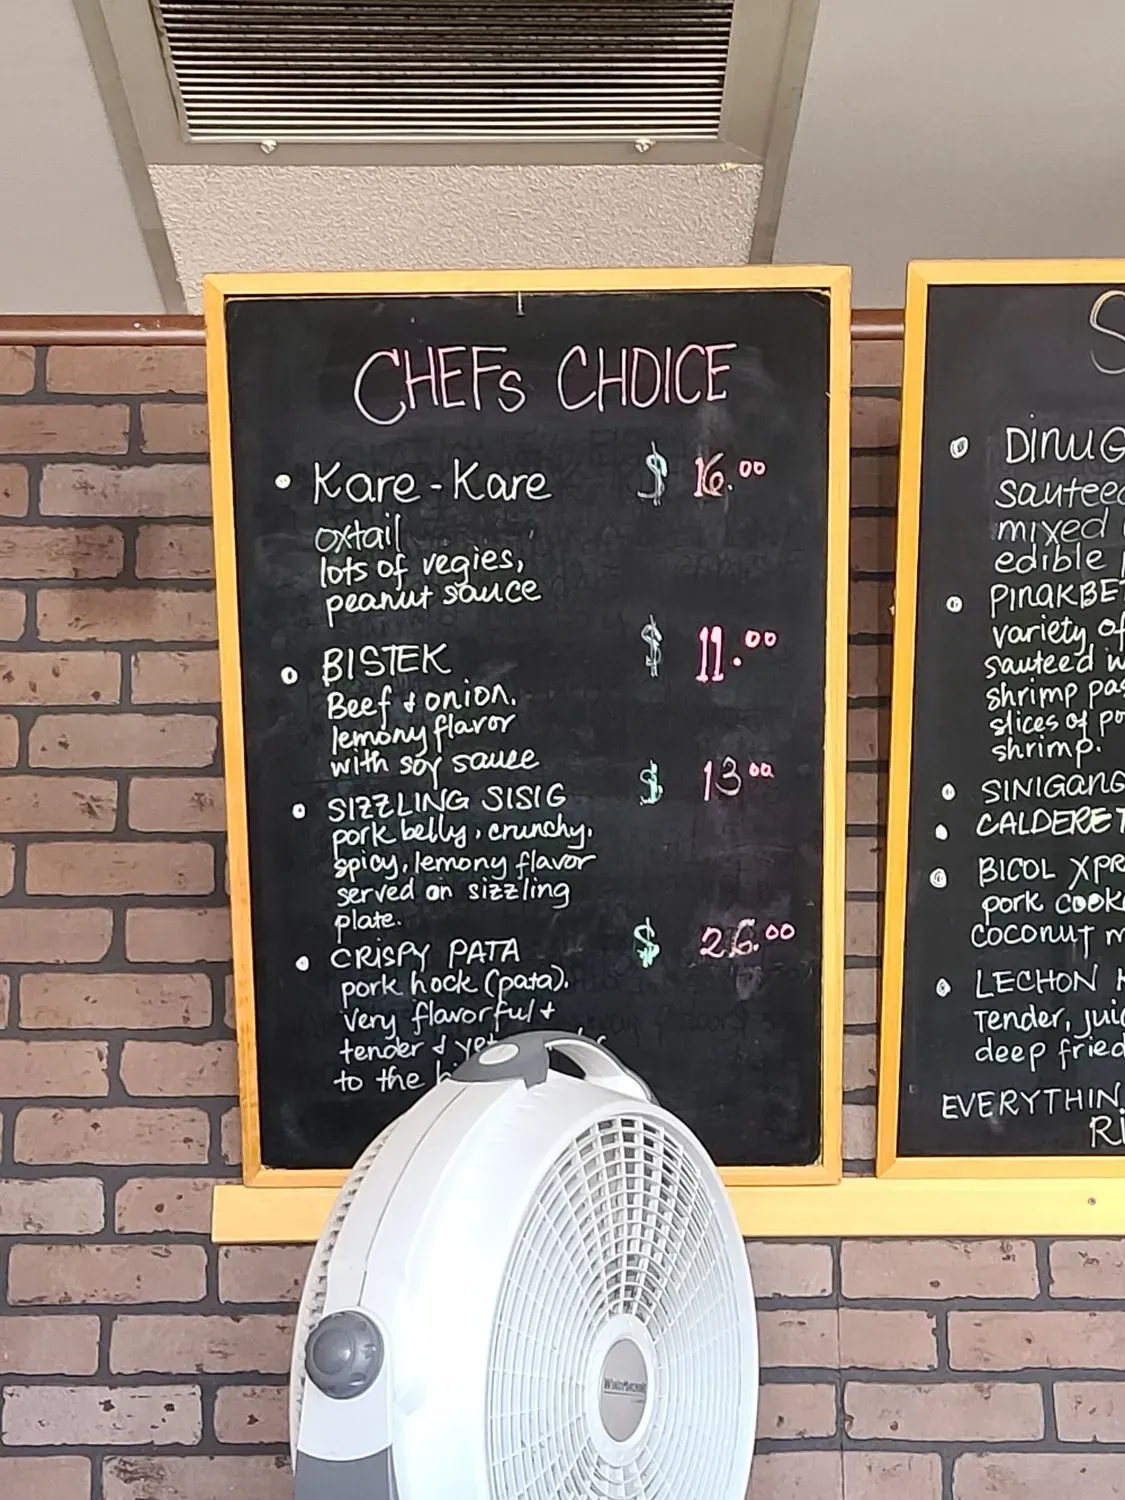 CHEFs CHOICE
Kare-Kare $ 16.00
oxtail
lots of vegies,
peanut sauce
BISTEK $ 11.00
Beef & onion.
lemony flavor
with soy sauce
SIZZLING SISIG $ 13 00
pork belly, crunchy,
spicy, lemony flavor
served on sizzling
plate.
CRISPY PATA $ 26.00
pork hock (pata).
very flavorful &
tender & yet
to the
S
DINUG
sauteed
mixed
edible
PINAKBET
variety of
sauteed
shrimp pas
slices of po
shrimp.
SINIGANG
CALDERET
BICOL XPR
pork cook
coconut m
LECHON K
Tender, juic
deep fried
EVERYTHIN
RI